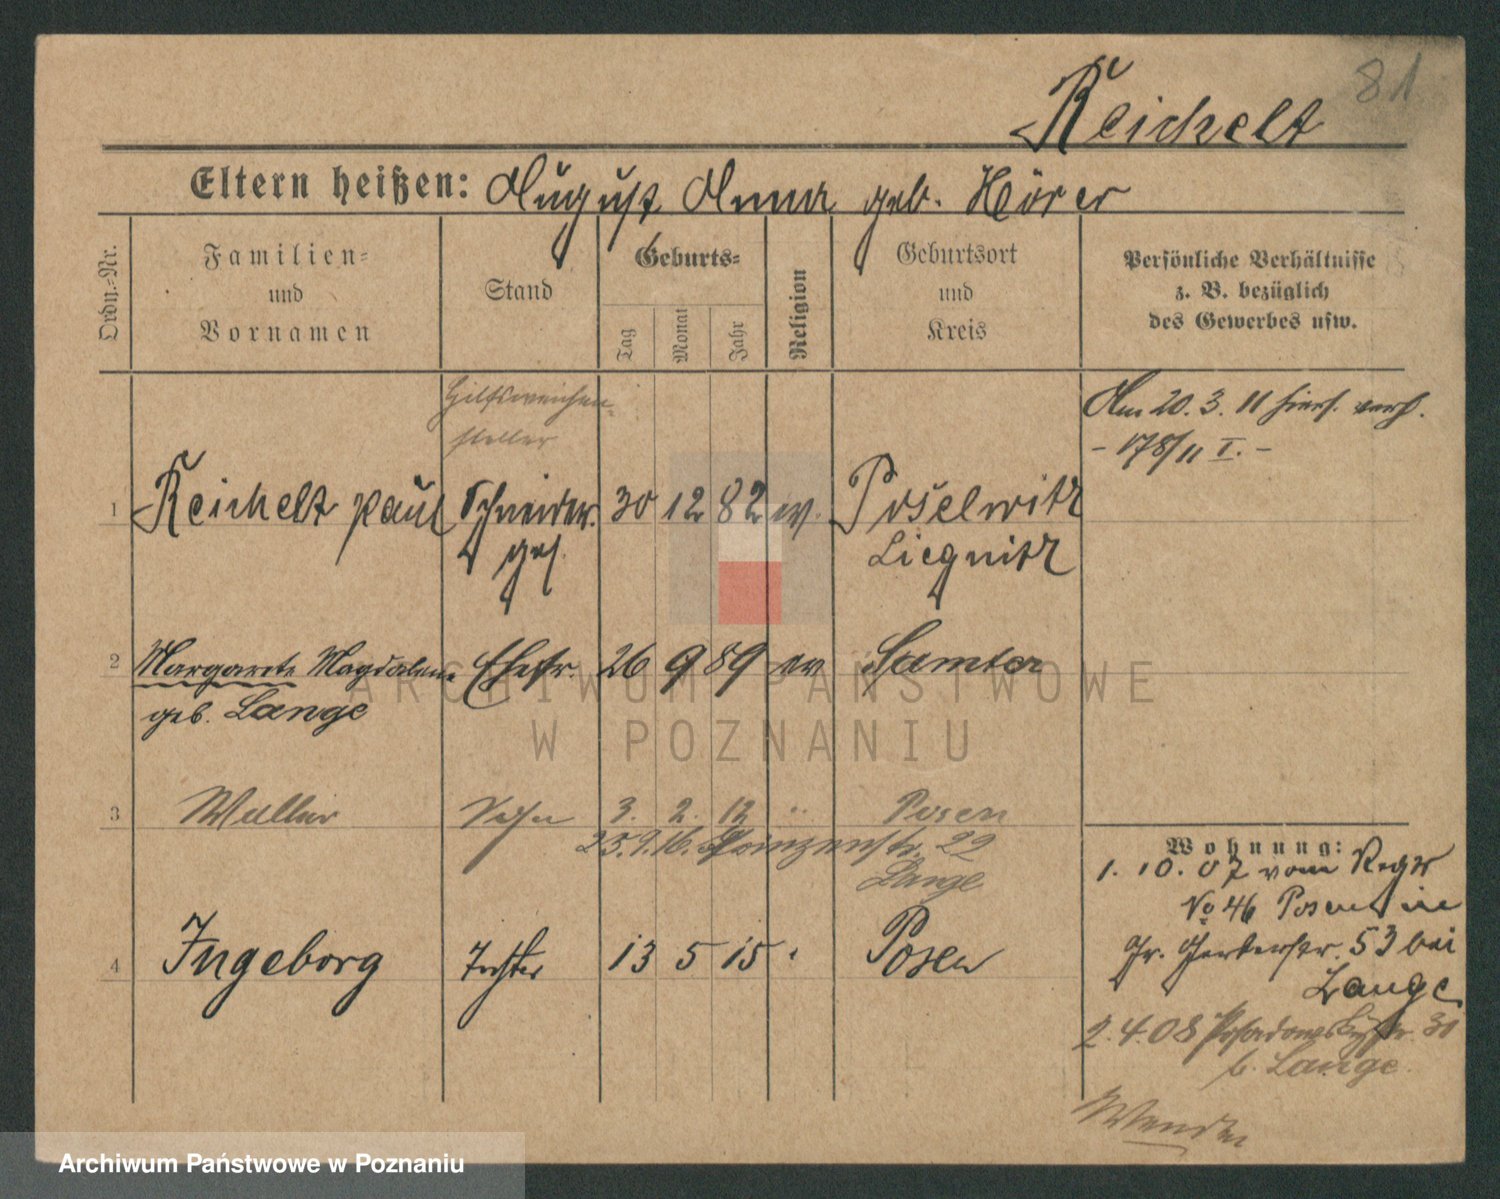 81
Reichelt
Eltern heißen: August Anna geb. Hörer
Ordn.-Nr.
Familien- und Vornamen
Stand
Geburts-
Tag
Monat
Jahr
Religion
Geburtsort und Kreis
Persönliche Verhältnisse
z. B. bezüglich
des Gewerbes usw.
Hilfsweichen-
steller
Am 20. 3. 11 hiers. verh.
- 178/11 I. -
1 Reichelt Paul Schneider- 30 12 82 ev. Poselwitz
ges. Liegnitz
2 Margarete Magdalene Ehefr. 26 9 89 ev Samter
geb. Lange
3 Walter Sohn 3. 2. 12 " Posen
25.9.16. Prinzenstr. 22
Lange
4 Ingeborg Tochter 13 5 15 " Posen
Wohnung:
1. 10. 07 vom Regt
No 46 Posen in
Gr. Gerberstr. 53 bei
Lange
2. 4. 08 Posadowskystr. 31
b. Lange.
Wenden
ARCHIWUM PAŃSTWOWE
W POZNANIU
Archiwum Państwowe w Poznaniu